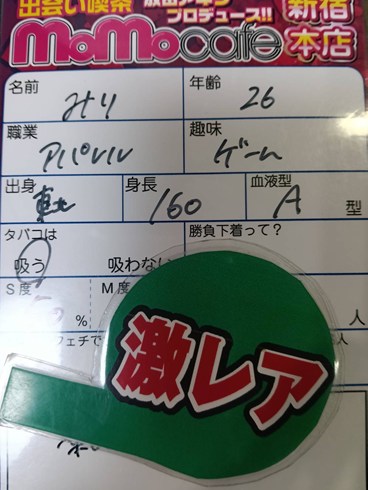 出会い喫茶
プロデュース!!
新宿
MoMocafe
本店
名前
年齢
みり
26
職業
趣味
アパレル
ゲーム
出身
身長
血液型
160
A
型
タバコは
勝負下着って?
吸う
吸わない
S度
M度
%
人
フェチで
激レア